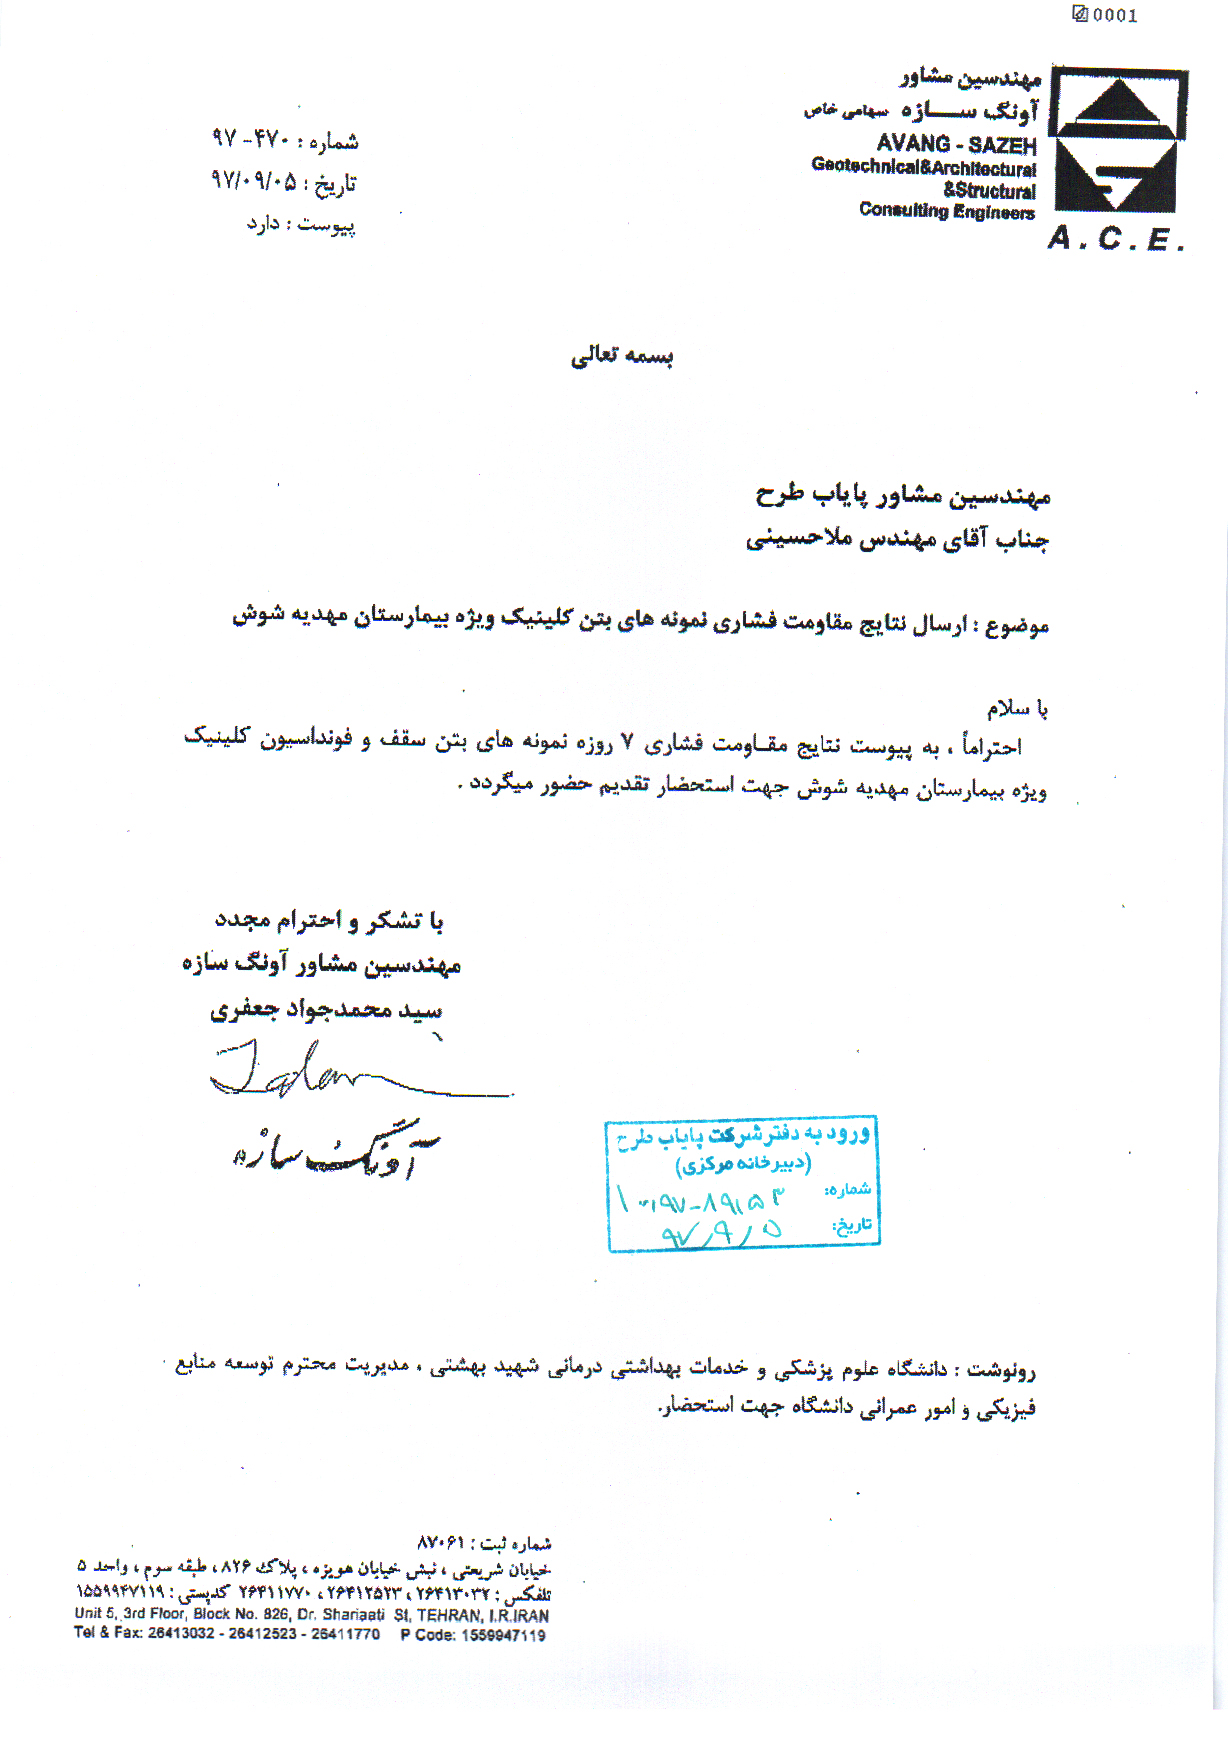 0001
مهندسین مشاور
آونگ ســـازه سهامی خاص
AVANG - SAZEH
Geotechnical&Architectural
&Structural
Consulting Engineers
A . C . E .
شماره : ۴۷۰- ۹۷
تاریخ : ۹۷/۰۹/۰۵
پیوست : دارد
بسمه تعالی
مهندسین مشاور پایاب طرح
جناب آقای مهندس ملاحسینی
موضوع : ارسال نتایج مقاومت فشاری نمونه های بتن کلینیک ویژه بیمارستان مهدیه شوش
با سلام
احتراماً ، به پیوست نتایج مقـاومت فشاری ۷ روزه نمونه های بتن سقف و فونداسیون کلینیک
ویژه بیمارستان مهدیه شوش جهت استحضار تقدیم حضور میگردد .
با تشکر و احترام مجدد
مهندسین مشاور آونگ سازه
سید محمدجواد جعفری
آونگ سازه
ورود به دفتر شرکت پایاب طرح
(دبیرخانه مرکزی)
شماره:
تاریخ: ۹۷/۹/۵
رونوشت : دانشگاه علوم پزشکی و خدمات بهداشتی درمانی شهید بهشتی ، مدیریت محترم توسعه منابع
فیزیکی و امور عمرانی دانشگاه جهت استحضار.
شماره ثبت : ۸۷۰۶۱
خیابان شریعتی ، نبش خیابان هویزه ، پلاک ۸۲۶ ، طبقه سوم ، واحد ۵
تلفکس : ۲۶۴۱۳۰۳۲ ، ۲۶۴۱۲۵۲۳ ، ۲۶۴۱۱۷۷۰ کدپستی : ۱۵۵۹۹۴۷۱۱۹
Unit 5, 3rd Floor, Block No. 826, Dr. Shariaati St, TEHRAN, I.R.IRAN
Tel & Fax: 26413032 - 26412523 - 26411770 P Code: 1559947119